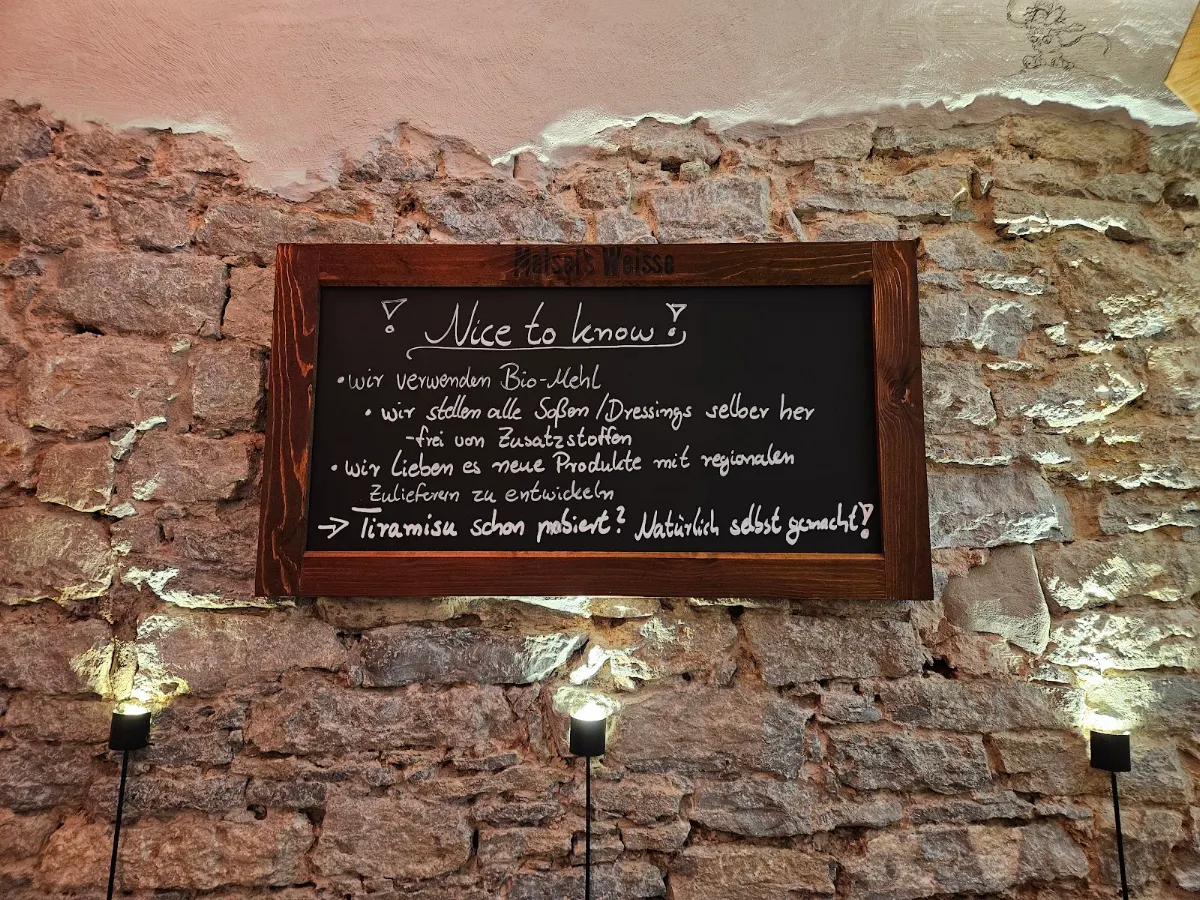 Maisel's Weisse
! Nice to know !
• wir verwenden Bio-Mehl
• wir stellen alle Soßen/Dressings selber her
-frei von Zusatzstoffen
• wir lieben es neue Produkte mit regionalen
Zulieferern zu entwickeln
→ Tiramisu schon probiert? Natürlich selbst gemacht!